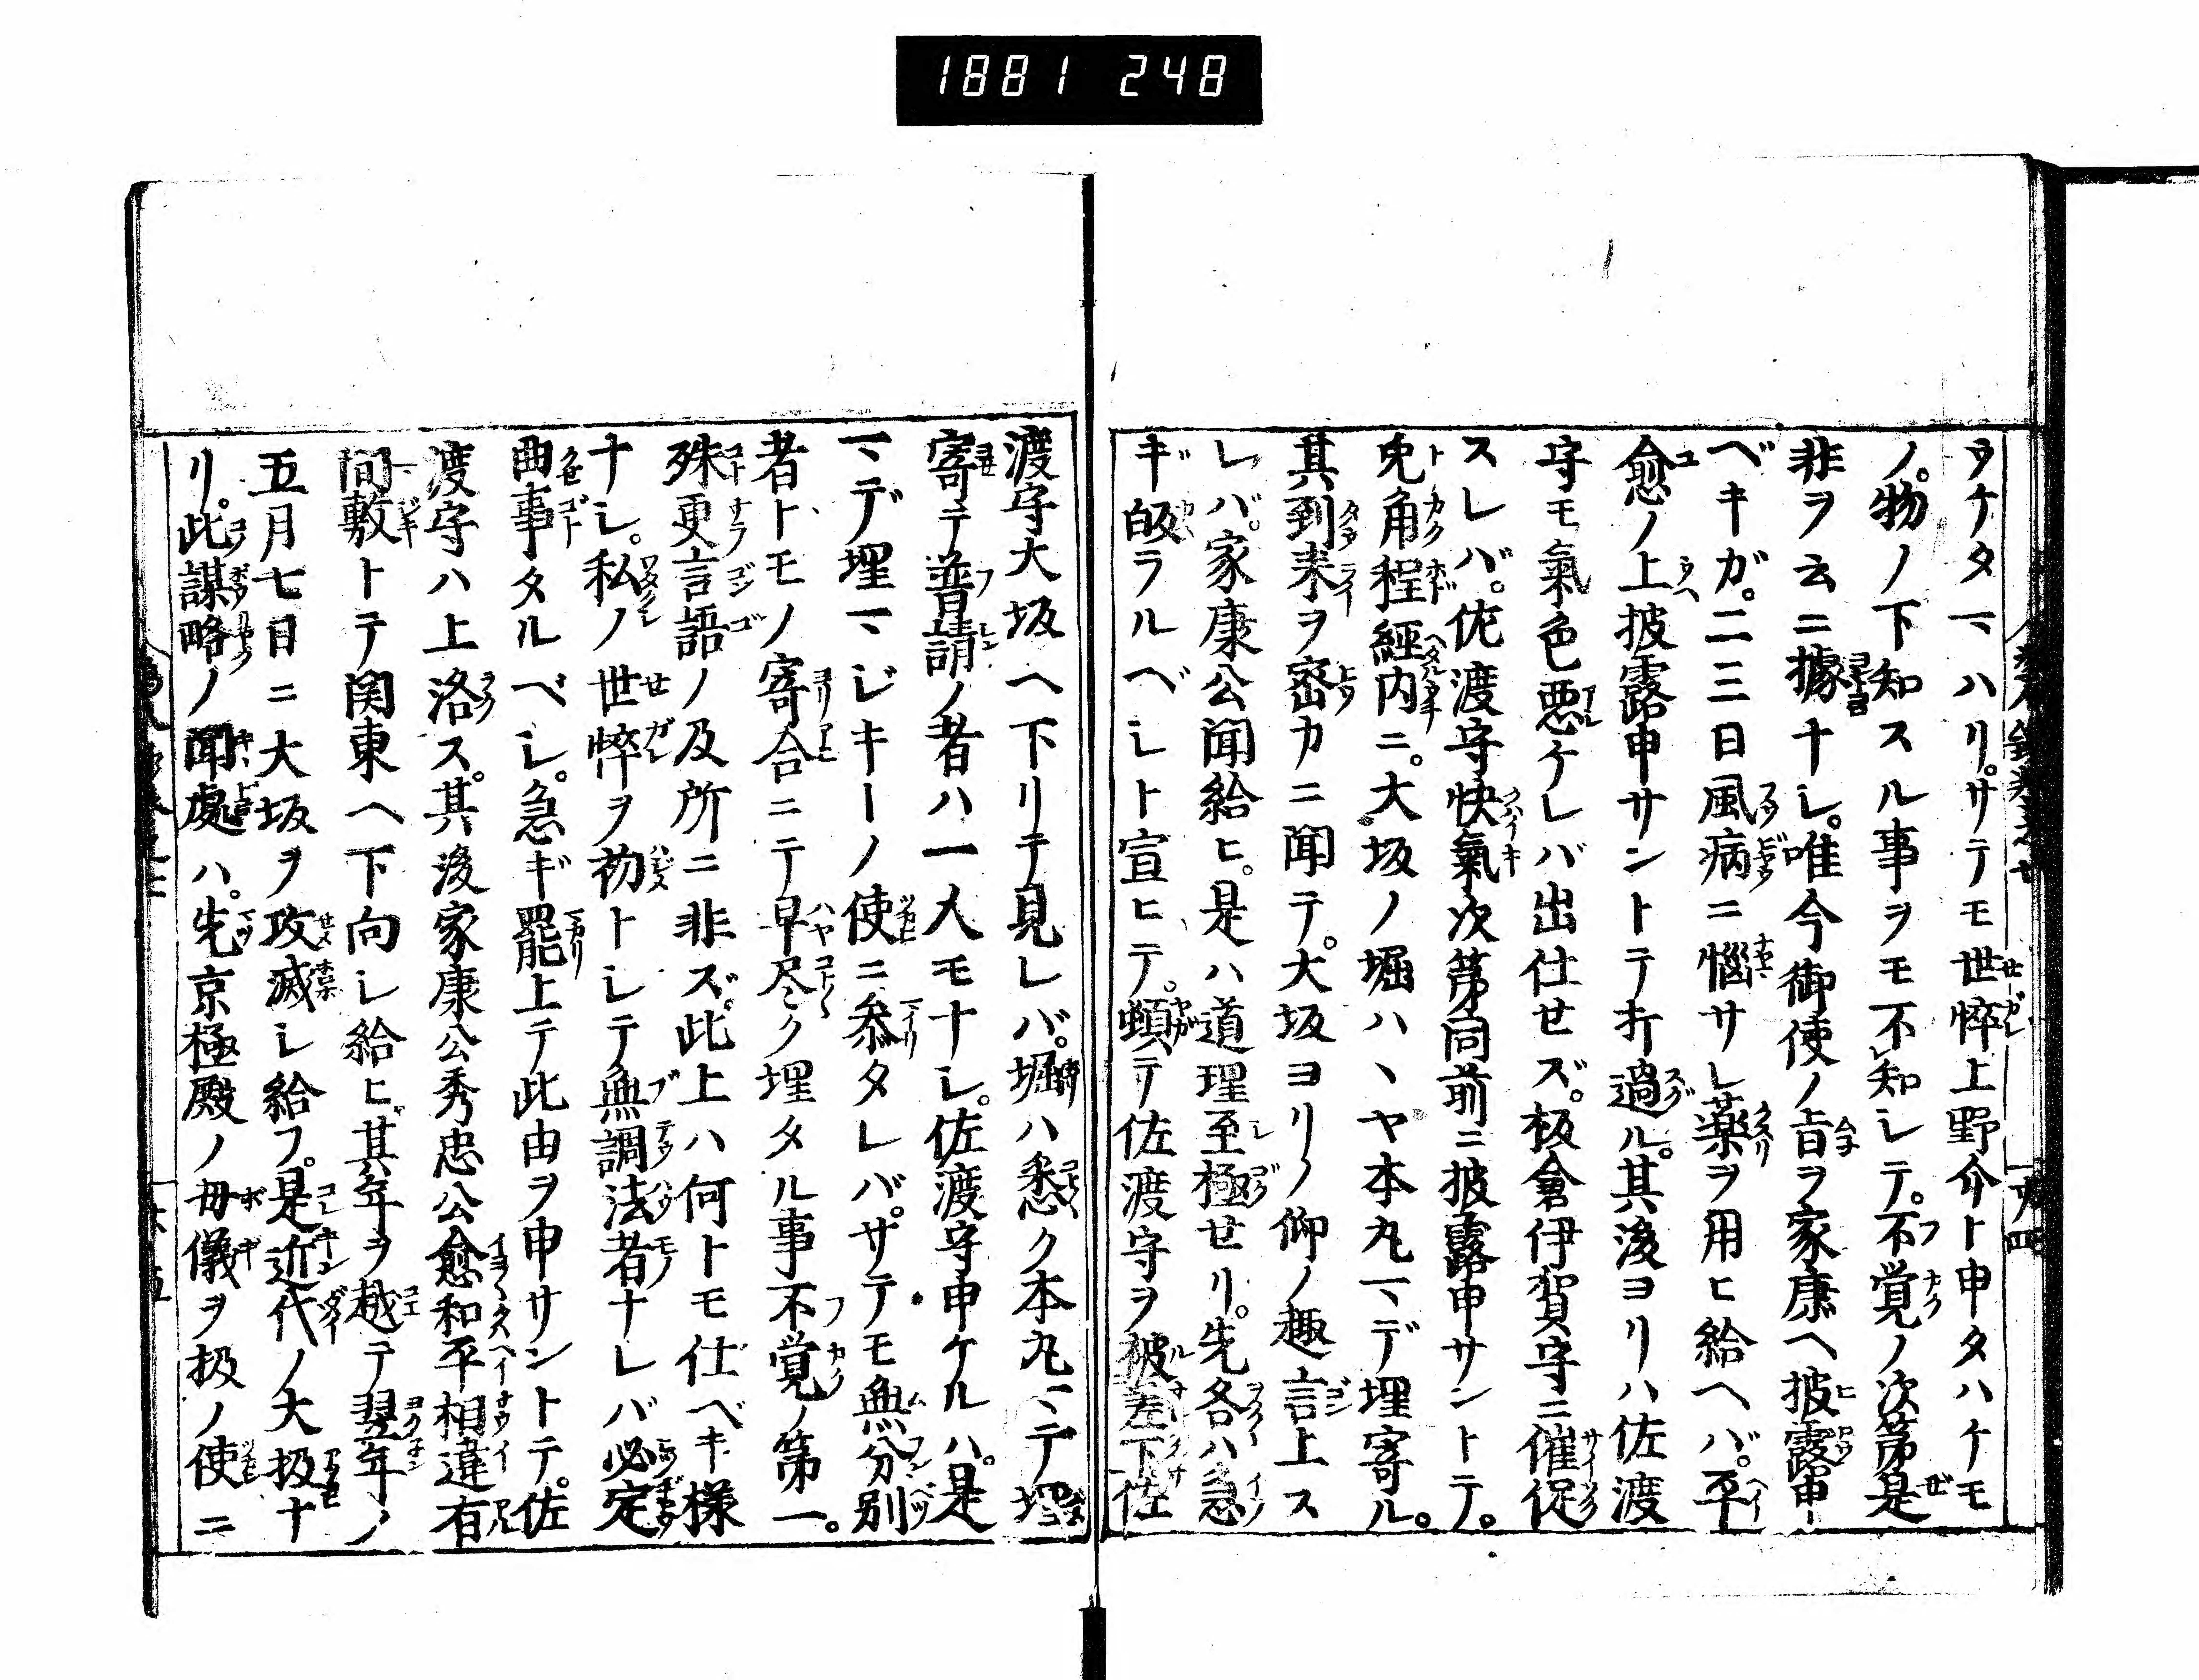 1881 248
ヲケタマハリ。サテモ世悴上野介ト申タハケモ
ノ。物ノ下知スル事ヲモ不知シテ。不覚ノ次第是
非ヲ云ニ據ナシ。唯今御使ノ旨ヲ家康ヘ披露申
ベキガ。二三日風病ニ惱サレ薬ヲ用ヒ給ヘバ。平
愈ノ上披露申サントテ打過ル。其後ヨリハ佐渡
守モ氣色悪ケレバ出仕セズ。板倉伊賀守ニ催促
スレバ。佐渡守快氣次第同前ニ披露申サントテ。
兎角程經内ニ。大坂ノ堀ハヽヤ本丸マデ埋寄ル。
其到来ヲ密カニ聞テ。大坂ヨリノ仰ノ趣言上ス
レバ。家康公聞給ヒ。是ハ道理至極せリ。先各ハ急
ギ皈ラルベシト宣ヒテ。頓テ佐渡守ヲ被差下佐
渡守大坂ヘ下リテ見レバ。堀ハ悉ク本丸マテ埋
寄テ普請ノ者ハ一人モナシ。佐渡守申ケルハ。是
マデ埋マジキトノ使ニ参タレバ。サテモ無分別
者トモノ寄合ニテ早尽ク埋タル事不覚ノ第一。
殊更言語ノ及所ニ非ズ。此上ハ何トモ仕ベキ様
ナシ。私ノ世悴ヲ初トシテ無調法者ナレバ必定
曲事タルベシ。急ギ罷上テ此由ヲ申サントテ。佐
渡守ハ上洛ス。其後家康公秀忠公愈和平相違有
間敷トテ関東ヘ下向シ給ヒ其年ヲ越テ翌年ノ
五月七日ニ大坂ヲ攻滅シ給フ。是近代ノ大扱ナ
リ。此謀略ノ聞處ハ。先京極殿ノ母儀ヲ扱ノ使ニ